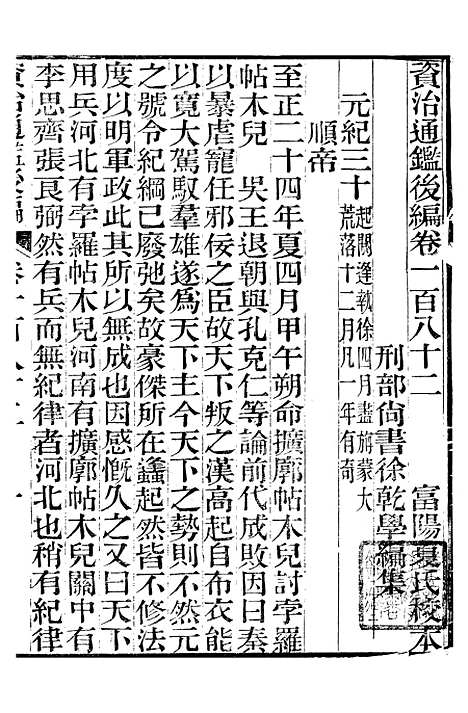 資治通鑑後編卷一百八十二 富陽夏氏校本
刑部尙書徐乾學編集
元紀三十 起閼逢執徐四月盡旃蒙大荒落十二月凡一年有奇
順帝
至正二十四年夏四月甲午朔命擴廓帖木兒討孛羅
帖木兒 吳王退朝與孔克仁等論前代成敗因曰秦
以暴虐寵任邪佞之臣故天下叛之漢高起自布衣能
以寬大駕馭羣雄遂爲天下主今天下之勢則不然元
之號令紀綱已廢弛矣故豪傑所在蠭起然皆不修法
度以明軍政此其所以無成也因感慨久之又曰天下
用兵河北有孛羅帖木兒河南有擴廓帖木兒關中有
李思齊張良弼然有兵而無紀律者河北也稍有紀律
資治通鑑後編 卷一百八十二 一